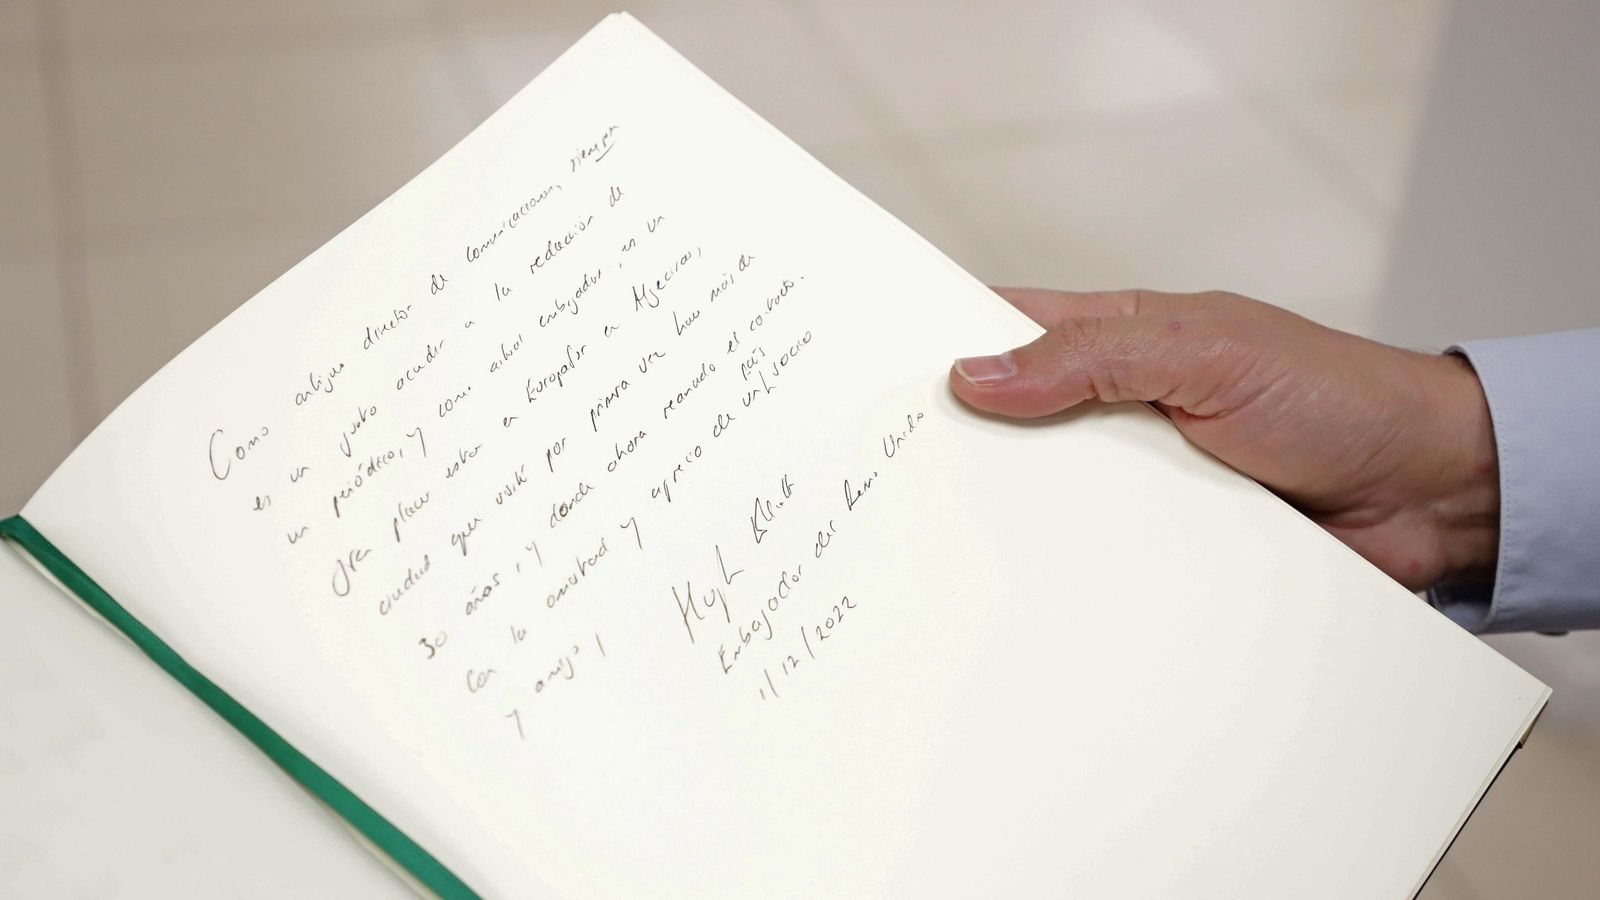 Como antiguo director de comunicaciones, siempre
es un gusto acudir a la redacción de
un periódico, y como actual embajador, es un
gran placer estar en Europasur en Algeciras,
ciudad que visité por primera vez hace más de
30 años, y donde ahora reanudo el contacto.
Con la amistad y aprecio de un país socio
y amigo!
Hugh Elliott
Embajador del Reino Unido
1/12/2022